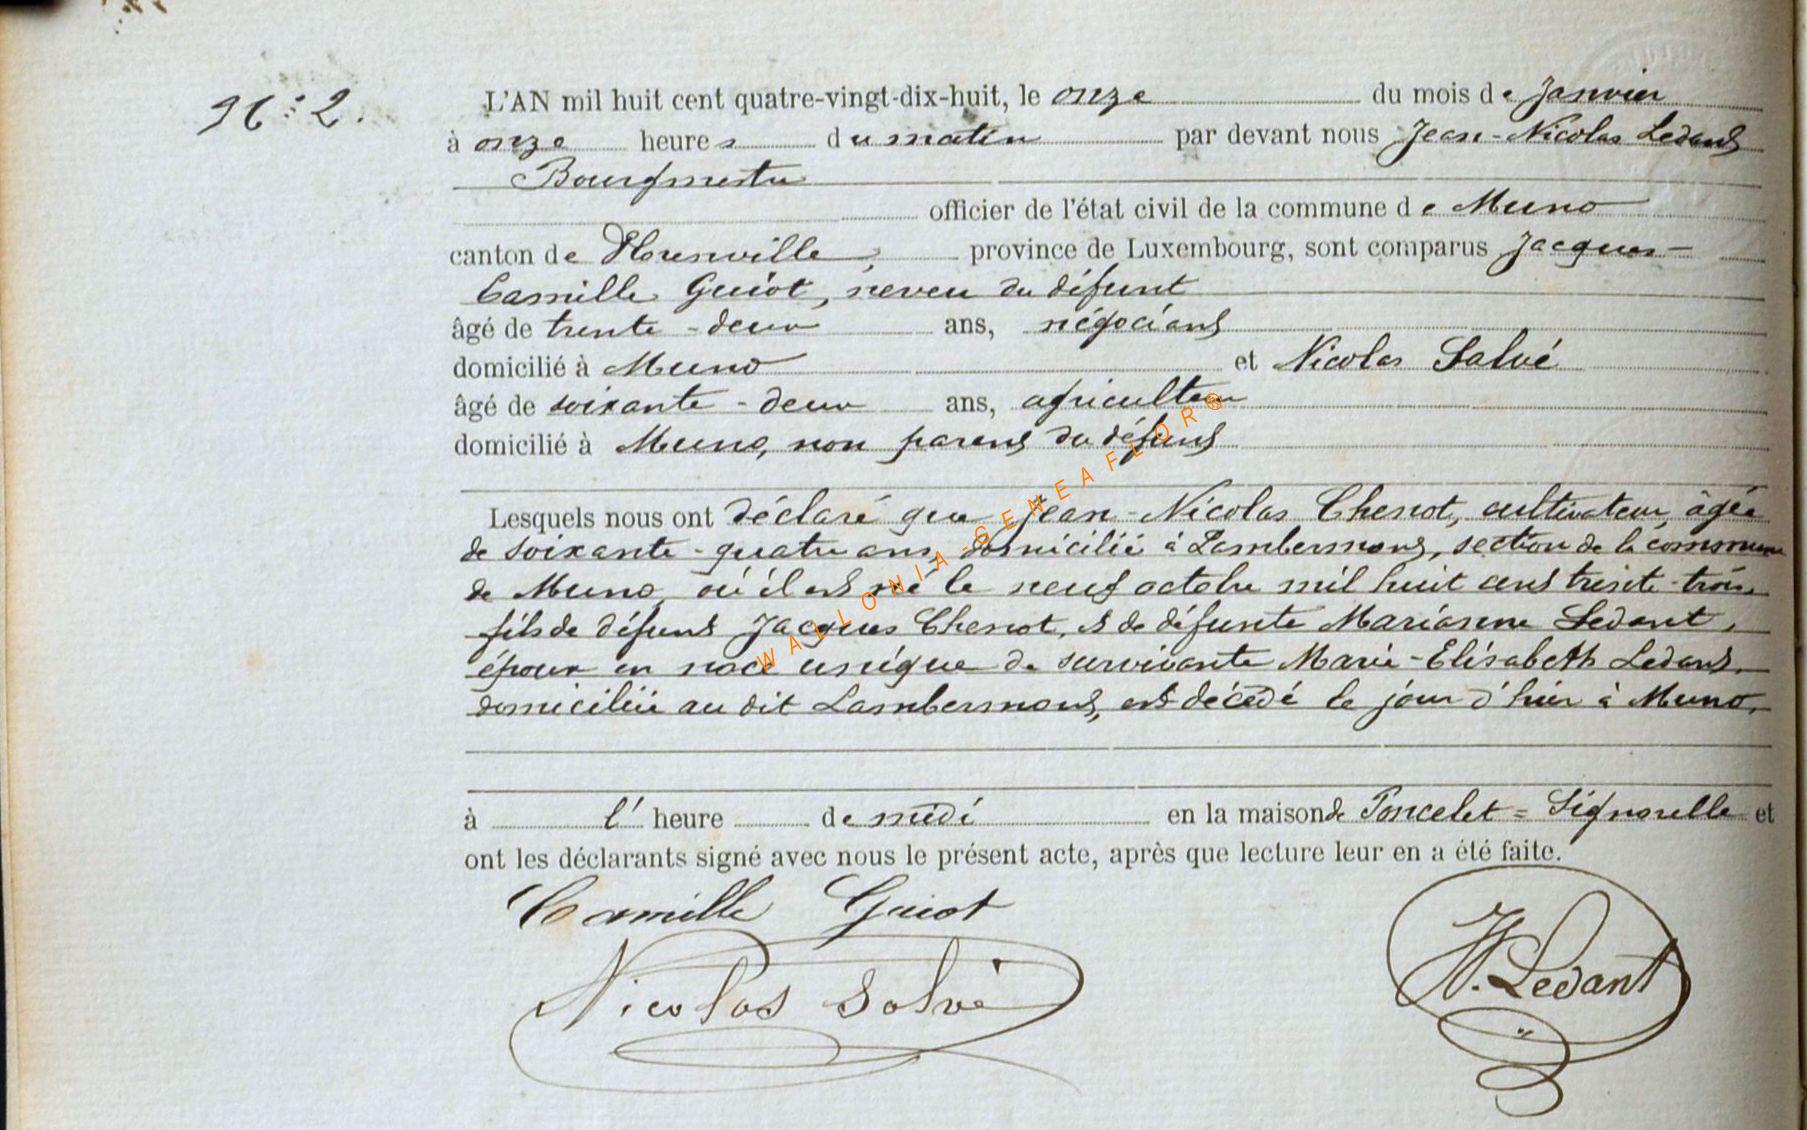 N° 2.
L'AN mil huit cent quatre-vingt-dix-huit, le onze du mois de Janvier
à onze heures du matin par devant nous Jean-Nicolas Ledant
Bourgmestre
officier de l'état civil de la commune de Muno
canton de Florenville, province de Luxembourg, sont comparus Jacques-
Camille Guiot, neveu du défunt
âgé de trente-deux ans, négociant
domicilié à Muno et Nicolas Salvé
âgé de soixante-deux ans, agriculteur
domicilié à Muno, non parent du défunt
Lesquels nous ont déclaré que Jean-Nicolas Chenot, cultivateur, âgée
de soixante-quatre ans, domicilié à Lambermont, section de la commune
de Muno, où il est né le neuf octobre mil huit cent trente-trois,
fils de défunt Jacques Chenot, et de défunte Marianne Ledant,
époux en noce unique de survivante Marie-Elisabeth Ledant,
domiciliée au dit Lambermont, est décédé le jour d'hier à Muno,
à l'heure de midi en la maison de Poncelet=Signorelle et
ont les déclarants signé avec nous le présent acte, après que lecture leur en a été faite.
Camille Guiot
Nicolas Salvé
JN. Ledant
WALLONIA-GENEAFLOR®